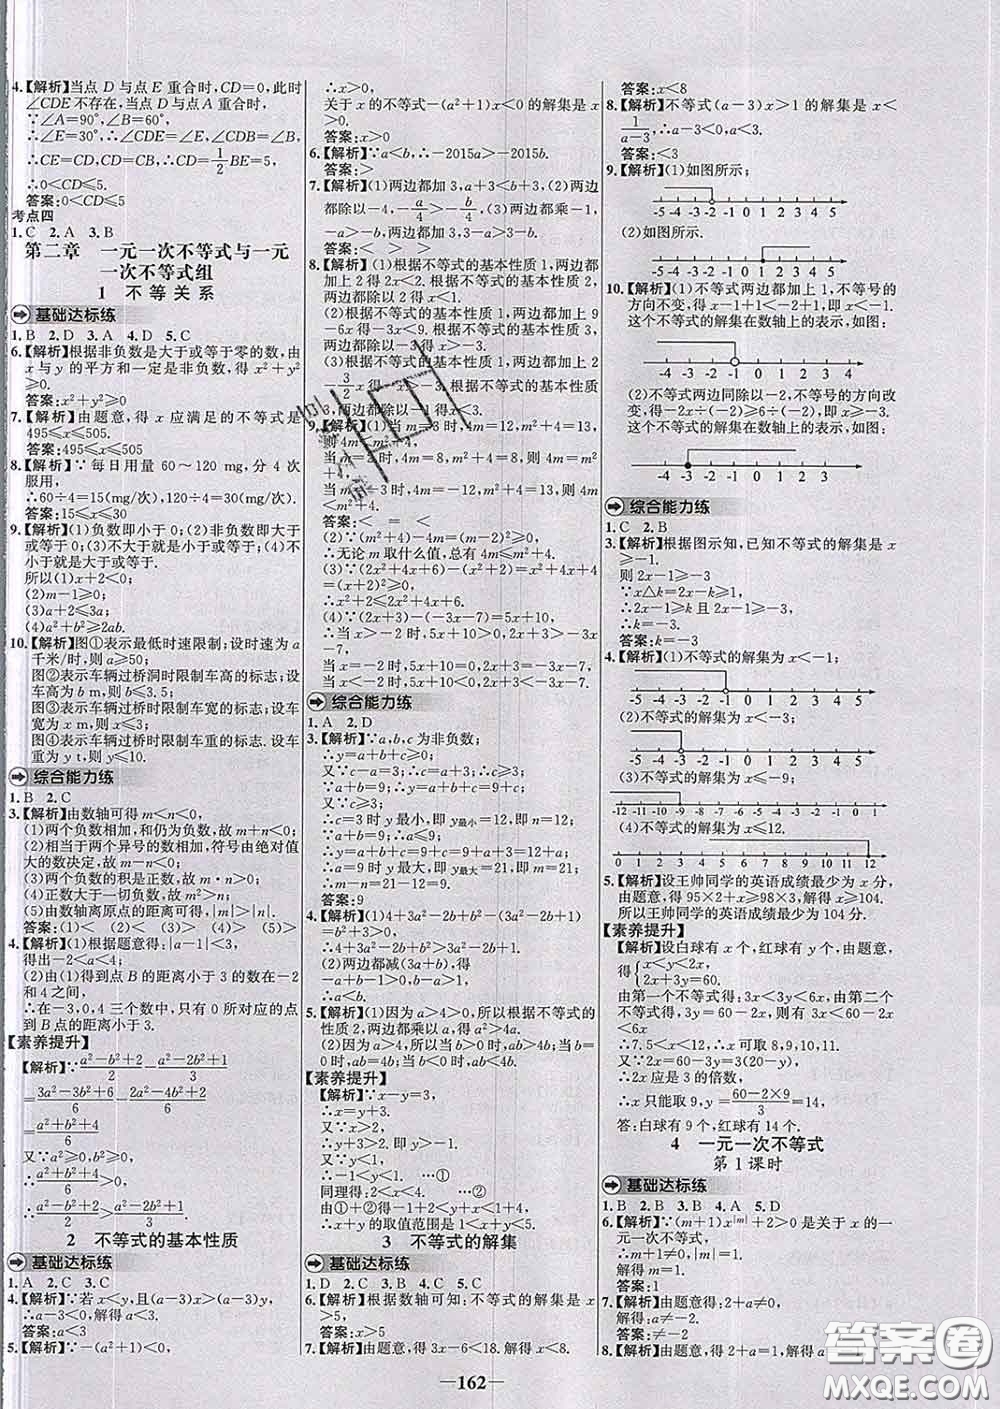 4.【解析】当点 D 与点 E 重合时,CD=0,此时
∠CDE 不存在,当点 D 与点 A 重合时,
∵∠A=90°,∠B=60°,
∴∠E=30°,∴∠CDE=∠E,∠CDB=∠B,
∴CE=CD,CD=CB,∴CD=1/2BE=5,
∴0<CD≤5
答案:0<CD≤5
考点四
1.C 2.A 3.B
第二章 一元一次不等式与一元
一次不等式组
1 不等关系
基础达标练
1.B 2.D 3.A 4.D 5.C
6.【解析】根据非负数是大于或等于零的数,由
x 与 y 的平方和一定是非负数,得 x²+y²
≥0.
答案:x²+y²≥0
7.【解析】由题意,得 x 应满足的不等式是
495≤x≤505.
答案:495≤x≤505
8.【解析】∵每日用量 60～120 mg,分 4 次
服用,
∴60÷4=15(mg/次),120÷4=30(mg/次).
答案:15≤x≤30
9.【解析】(1)负数即小于 0;(2)非负数即大于
或等于 0;(3)不大于就是小于或等于;(4)不
小于就是大于或等于.
所以(1)x+2<0;
(2)m-1≥0;
(3)a+2≤3a;
(4)a²+b²≥2ab.
10.【解析】图①表示最低时速限制;设时速为 a
千米/时,则 a≥50;
图②表示车辆过桥洞时限制车高的标志;设
车高为 b m,则 b≤3.5;
图③表示车辆过桥时限制车宽的标志;设车
宽为 x m,则 x≤3;
图④表示车辆过桥时限制车重的标志.设车
重为 y t,则 y≤10.
综合能力练
1.B 2.C
3.【解析】由数轴可得 m<n<0;
(1)两个负数相加,和仍为负数,故 m+n<0;
(2)相当于两个异号的数相加,符号由绝对值
大的数决定,故 m-n<0;
(3)两个负数的积是正数,故 m·n>0;
(4)正数大于一切负数,故 m²>n;
(5)由数轴离原点的距离可得,|m|>|n|.
答案:(1)< (2)< (3)> (4)> (5)>
4.【解析】(1)根据题意得:|a-1|<3,
得出-2<a<4.
(2)由(1)得到点 B 的距离小于 3 的数在-2
和 4 之间,
∴在-3,0,4 三个数中,只有 0 所对应的点
到 B 点的距离小于 3.
【素养提升】
【解析】∵(a²-b²+2)/2-(a²-2b²+1)/3
=(3a²-3b²+6)/6-(2a²-4b²+2)/6
=(a²+b²+4)/6
又∵a²≥0,b²≥0,
∴(a²+b²+4)/6>0,
∴(a²-b²+2)/2>(a²-2b²+1)/3.
2 不等式的基本性质
基础达标练
1.A 2.C 3.C
4.【解析】∵若 x<y,且(a-3)x>(a-3)y,
∴a-3<0,解得 a<3.
答案:a<3
5.【解析】∵-(a²+1)<0,
∴x>0,
关于 x 的不等式-(a²+1)x<0 的解集是 x
>0.
答案:x>0
6.【解析】∵a<b,∴-2015a>-2015b.
答案:>
7.【解析】(1)两边都加 3,a+3<b+3,(2)两边
都除以-4,-a/4>-b/4,(3)两边都乘-1,
-a>-b,(4)两边都减 b,a-b<0.
8.【解析】(1)根据不等式的基本性质 1,两边都
加上 2 得 2x<2.根据不等式的基本性质 2,
两边都除以 2 得 x<1.
(2)根据不等式的基本性质 1,两边都加上 9
-6x 得-3x<9.根据不等式的基本性质 3,两
边都除以-3 得 x>-3.
(3)根据不等式的基本性质 1,两边都加上
-3/2x 得-x>-3.根据不等式的基本性质
3,两边都除以-1 得 x<3.
9.【解析】(1)当 m=3 时,4m=12,m²+4=13,
则 4m<m²+4,
当 m=2 时,4m=8,m²+4=8,则 4m=m²
+4,
当 m=-3 时,4m=-12,m²+4=13,则
4m<m²+4.
答案:< = <
(2)∵(m²+4)-4m=(m-2)²≥0,
∴无论 m 取什么值,总有 4m≤m²+4.
(3)∵(2x²+4x+6)-(x²+4x+2)=x²+4
>0,
∴x²+2<2x²+4x+6.
(4)∵(2x+3)-(-3x-7)=5x+10,
∴当 x>-2 时,5x+10>0,2x+3>-3x
-7,
当 x=-2 时,5x+10=0,2x+3=-3x-7,
当 x<-2 时,5x+10<0,2x+3<-3x-7.
综合能力练
1.A 2.D
3.【解析】∵a,b,c 为非负数;
∴y=a+b+c≥0;
又∵c-a=3;∴c=a+3;∴c≥3;
∵a+b=9;
∴c=3 时 y 最小,即 y最小=12,即 n=12;
∵a+b=9;∴a≤9;
∴y=a+b+c=9+c=9+a+3=12+a;
∴a=9 时 y 最大,即 y最大=21,即 m=21;
∴m-n=21-12=9.
答案:9
4.【解析】(1)4+3a²-2b+b²-(3a²-2b+1)
=b²+3>0,
∴4+3a²-2b+b²>3a²-2b+1.
(2)两边都减(a+b),得
-a+b-1>0,即 b-a>1,
∴a<b.
5.【解析】(1)因为 a>4>0,所以根据不等式的
性质 2,两边都乘以 a,得 a²>4a.
(2)因为 a>4,所以当 b>0 时,ab>4b;当 b
=0 时,ab=4b;当 b<0 时,ab<4b.
【素养提升】
【解析】∵x-y=3,
∴x=y+3.
又∵x>2,
∴y+3>2,即 y>-1.
又∵y<1,
∴-1<y<1. …①
同理得:2<x<4. …②
由①+②得-1+2<y+x<1+4,
∴x+y 的取值范围是 1<x+y<5.
3 不等式的解集
基础达标练
1.D 2.C 3.C 4.B 5.C
6.【解析】根据数轴可知:不等式的解集是 x
>5,
答案:x>5
7.【解析】由题意,得 3x-6<18.解得 x<8.
答案:x<8
8.【解析】不等式(a-3)x>1 的解集是 x<
1/(a-3),∴a-3<0,a<3.
答案:<3
9.【解析】(1)如图所示,
-5 -4 -3 -2 -1 0 1 2 3 4 5
(2)如图所示.
-5 -4 -3 -2 -1 0 1 2 3 4 5
10.【解析】(1)不等式两边都减 1,不等号的
方向不变,得 x-1+1<-2+1,即 x<-1.
这个不等式的解集在数轴上的表示,如图:
-4 -3 -2 -1 0 1 2 3 4
(2)不等式两边同除以-2,不等号的方向改
变,得-2x÷(-2)≥6÷(-2),即 x≥-3.
这个不等式的解集在数轴上的表示,如图:
-4 -3 -2 -1 0 1 2 3 4
综合能力练
1.C 2.B
3.【解析】根据图示知,已知不等式的解集是 x
≥-1.
则 2x-1≥-3
∵x△k=2x-k≥1,
∴2x-1≥k 且 2x-1≥-3,
∴k=-3.
答案:k=-3
4.【解析】(1)不等式的解集为 x<-1;
-5 -4 -3 -2 -1 0 1 2 3 4 5
(2)不等式的解集为 x<-3;
-5 -4 -3 -2 -1 0 1 2 3 4 5
(3)不等式的解集为 x≤-9;
-12 -11 -10 -9 -8 -7 -6 -5 -4 -3 -2 -1 0
(4)不等式的解集为 x≤12.
0 1 2 3 4 5 6 7 8 9 10 11 12
5.【解析】设王帅同学的英语成绩最少为 x 分,
由题意,得 95×2+x≥98×3,解得 x≥104.
所以王帅同学的英语成绩最少为 104 分.
【素养提升】
【解析】设白球有 x 个,红球有 y 个,由题意,
得{x<y<2x, 2x+3y=60.
由第一个不等式得:3x<3y<6x,由第二个不
等式得,3y=60-2x,则有 3x<60-2x
<6x
∴7.5<x<12,∴x 可取 8,9,10,11.
又∵2x=60-3y=3(20-y),
∴2x 应是 3 的倍数,
∴x 只能取 9,y=(60-2×9)/3=14,
答:白球有 9 个,红球有 14 个.
4 一元一次不等式
第 1 课时
基础达标练
1.B 2.B 3.B 4.A 5.D
6.【解析】∵(m+1)x^|m|+2>0 是关于 x 的一
元一次不等式,
∴m+1≠0,|m|=1.
解得 m=1.
答案:1
7.【解析】由题意得:2+a≠0,
解得 a≠-2.
答案:≠-2
8.【解析】由题意得:2a+1=1,解得
—162—
答案圈
MXQE.COM